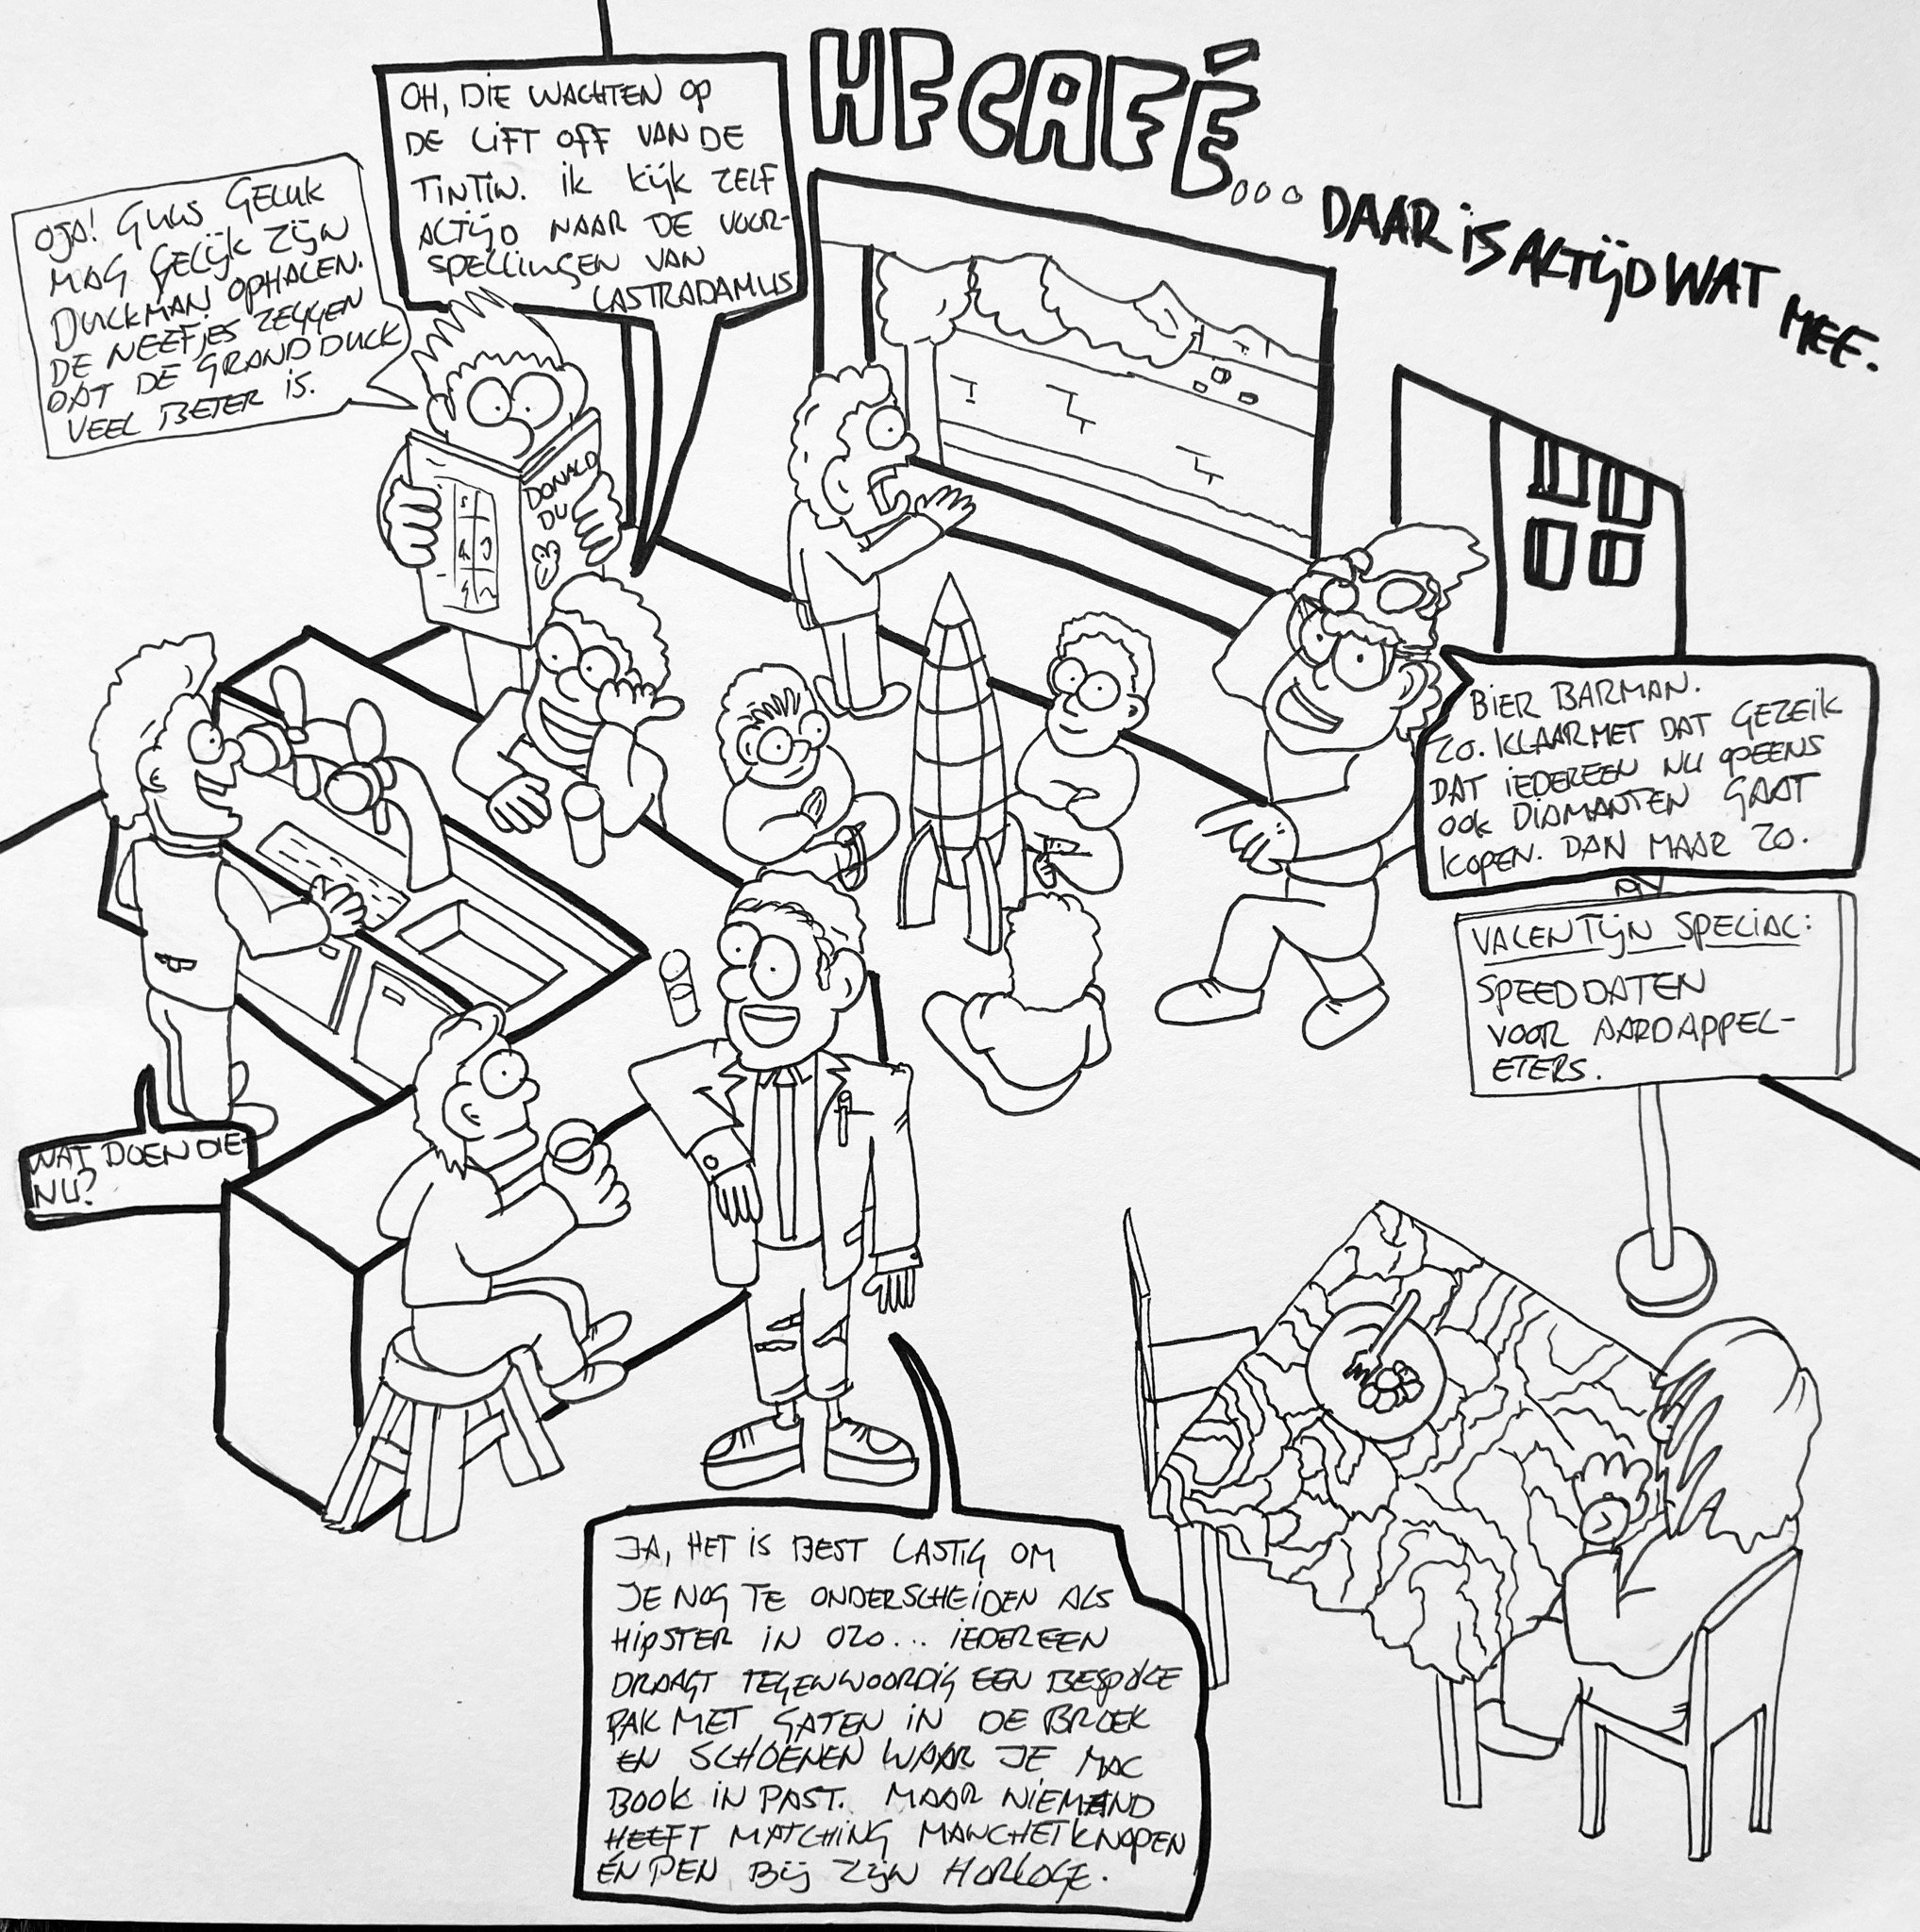 HF CAFÉ...
DAAR IS ALTIJD WAT
MEE.
OH, DIE WACHTEN OP
DE LIFT OFF VAN DE
TINTIN. IK KIJK ZELF
ALTIJD NAAR DE VOOR-
SPELLINGEN VAN
CASTRADAMUS
OJA! GUUS GELUK
MAG GELIJK ZIJN
DUCKMAN OPHALEN.
DE NEEFJES ZEGGEN
DAT DE GRAND DUCK
VEEL BETER IS.
DONALD
DU
BIER BARMAN.
ZO. KLAAR MET DAT GEZEIK
DAT IEDEREEN NU OPEENS
OOK DIAMANTEN GAAT
KOPEN. DAN MAAR ZO.
VALENTIJN SPECIAL:
SPEEDDATEN
VOOR AARDAPPEL-
ETERS.
WAT DOEN DIE
NU?
JA, HET IS BEST LASTIG OM
JE NOG TE ONDERSCHEIDEN ALS
HIPSTER IN 020... IEDEREEN
DRAAGT TEGENWOORDIG EEN BESPOKE
PAK MET GATEN IN DE BROEK
EN SCHOENEN WAAR JE MAC
BOOK IN PAST. MAAR NIEMAND
HEEFT MATCHING MANCHETKNOPEN
ÉN PEN BIJ ZIJN HORLOGE.